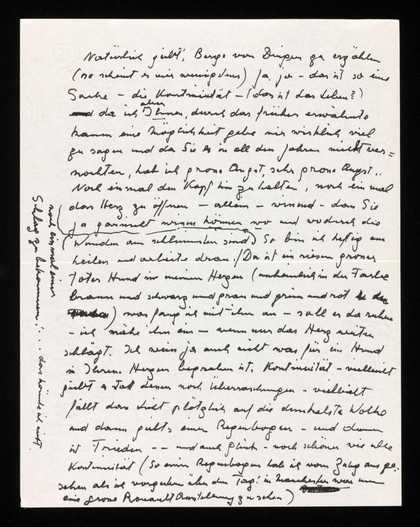 Natürlich gibt's Berge von Dingen zu erzählen
(so scheint es mir wenigstens) Ja ja – das ist so eine
Sache – die Kontinuität – (das ist das Leben?)
da ich aber Ihnen, durch das früher erwähnte
kaum eine Möglichkeit gebe mir wirklich viel
zu sagen und da Sie es in all den Jahren nicht ver-
mochten, hab ich grosse Angst, sehr grosse Angst..
Noch einmal den Kopf hin zu halten, noch einmal
das Herz zu öffnen – allein – wissend – dass Sie
ja garnicht wissen können wo und wodurch die
(Wunden am schlimmsten sind) So bin ich heftig am
heilen und arbeite dran! Da ist ein riesen grosser
Toter Hund in meinem Herzen (unheimlich in der Farbe
braun und schwarz und grau und grün und rot
) was fang ich mit ihm an – soll er da ruhen
– ich nähe ihn ein – wenn nur das Herz weiter
schlägt. Ich weiss ja auch nicht was für ein Hund
in Ihrem Herzen begraben ist. Kontinuität – vielleicht
gibt es statt deren noch Überraschungen – vielleicht
fällt das Licht plötzlich auf die dunkelste Wolke
und dann gibt's einen Regenbogen – und dann
ist Frieden –– und auch Glück – noch schöner wie alle
Kontinuität (So einen Regenbogen hab ich vom Zug aus ge-
sehen als ich vorgestern über den Tag in Manchester war um
eine grosse Ausstellung zu sehen)
noch einmal einen
Schlag zu bekommen! ... das könnte ich nicht